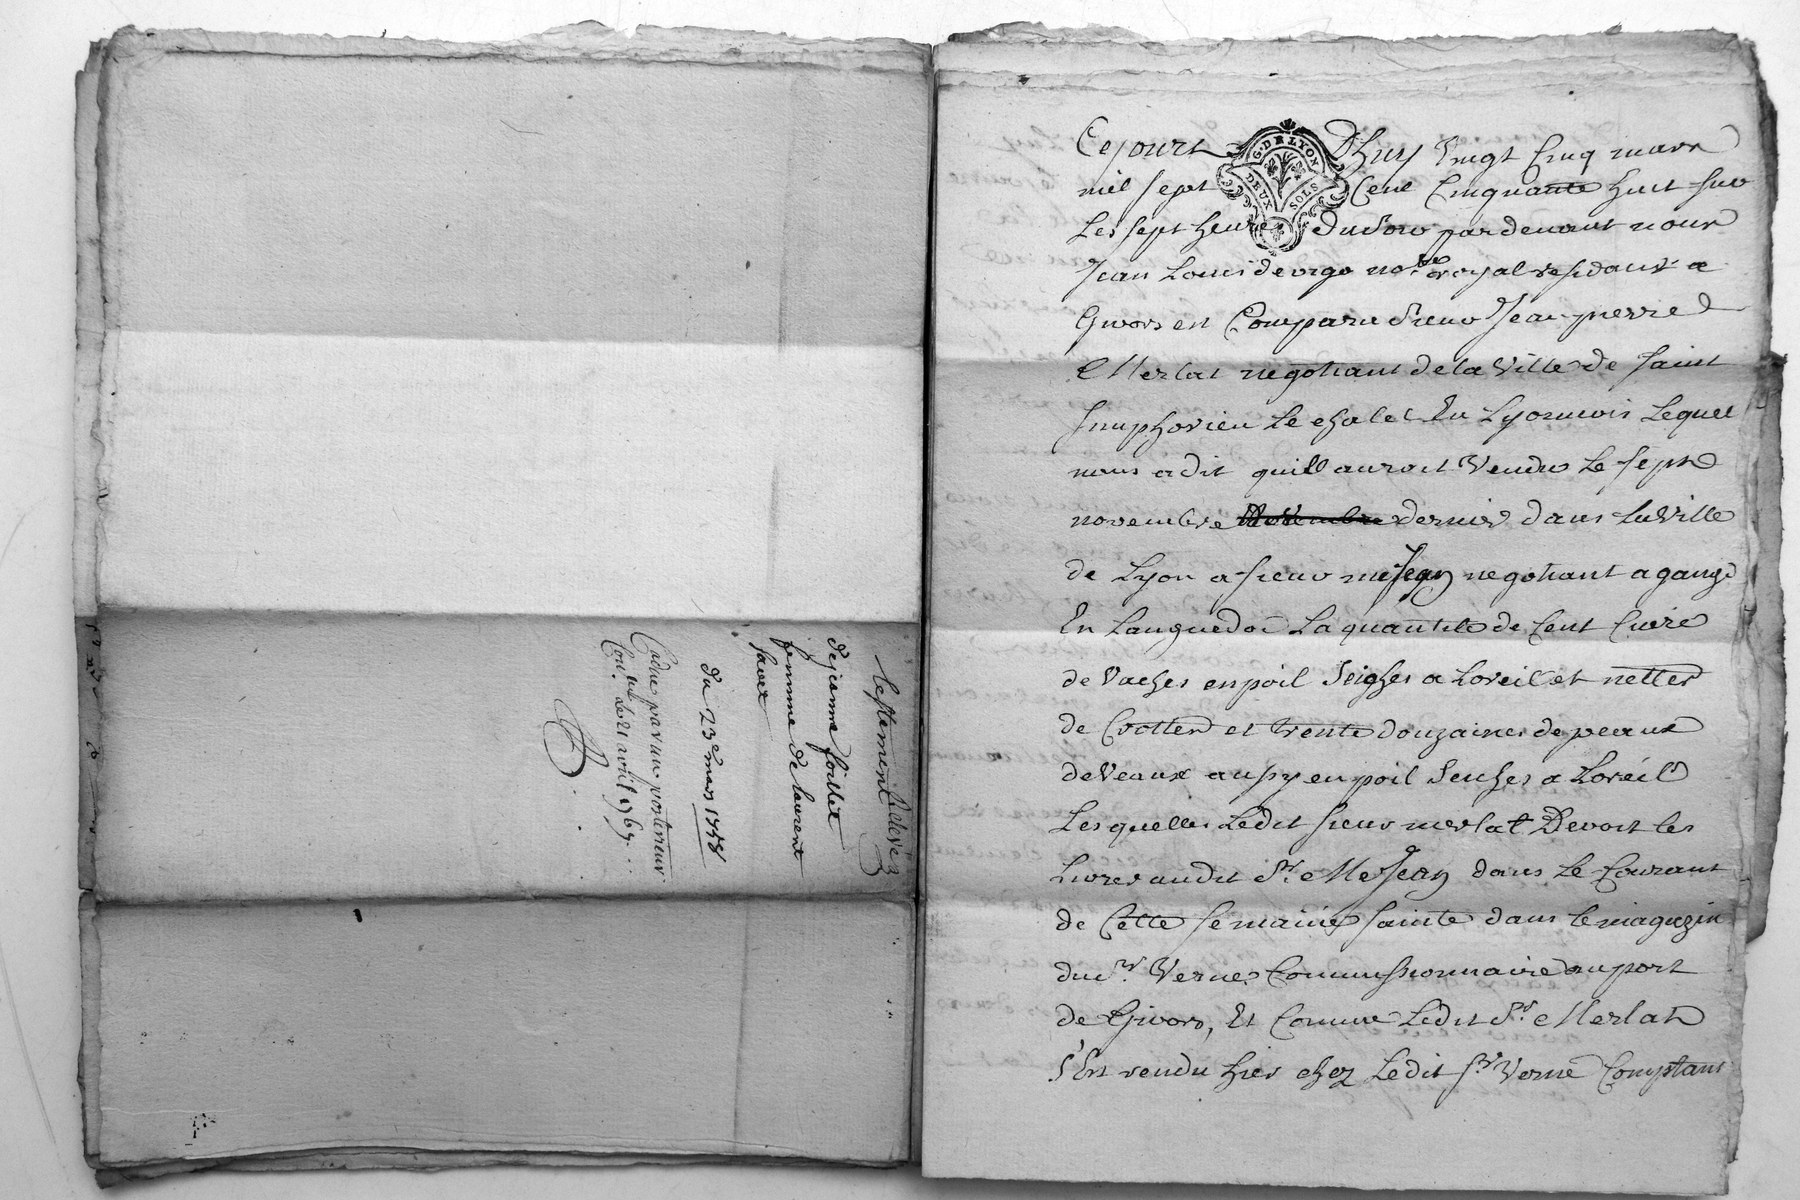 testement relevé
de jeanne foillet
femme de laurent
favet
du 23e mars 1758
Caduc par un posterieur
Con.lé le 21 avril 1765
G. DE LYON
DEUX SOLS
Ce jourt Dhuy Vingt Cinq mars
mil sept Cent Cinquante huit sur
Les sept heures du soir pardevant nous
Jean Louis devigo no.re royal residant a
Givors est Comparu Sieur Jean pierre
Merlat negotiant de la Ville de saint
simphorien Le chatel En Lyonnois Lequel
nous a dit quill auroit Vendu Le sept
novembre novembre dernier dans la Ville
de Lyon a sieur meJean negotiant a gange
En Languedoc La quantité de Cent Cuire
de Vaches en poil seighes a Loreil et nettes
de Crottes et trente douzaines de peaux
de Veaux aussy en poil seiches a Loreil
Lesquelles Ledit sieur merlat Devoit les
Livrer audit Sr. MeJean dans Le Courant
de Cette semaine sainte dans le magazin
du Sr. Vernes Commissionnaire au port
de Givors, Et Comme Ledit Sr. Merlat
s'Est rendu hier chez Ledit Sr. Verne Comptant